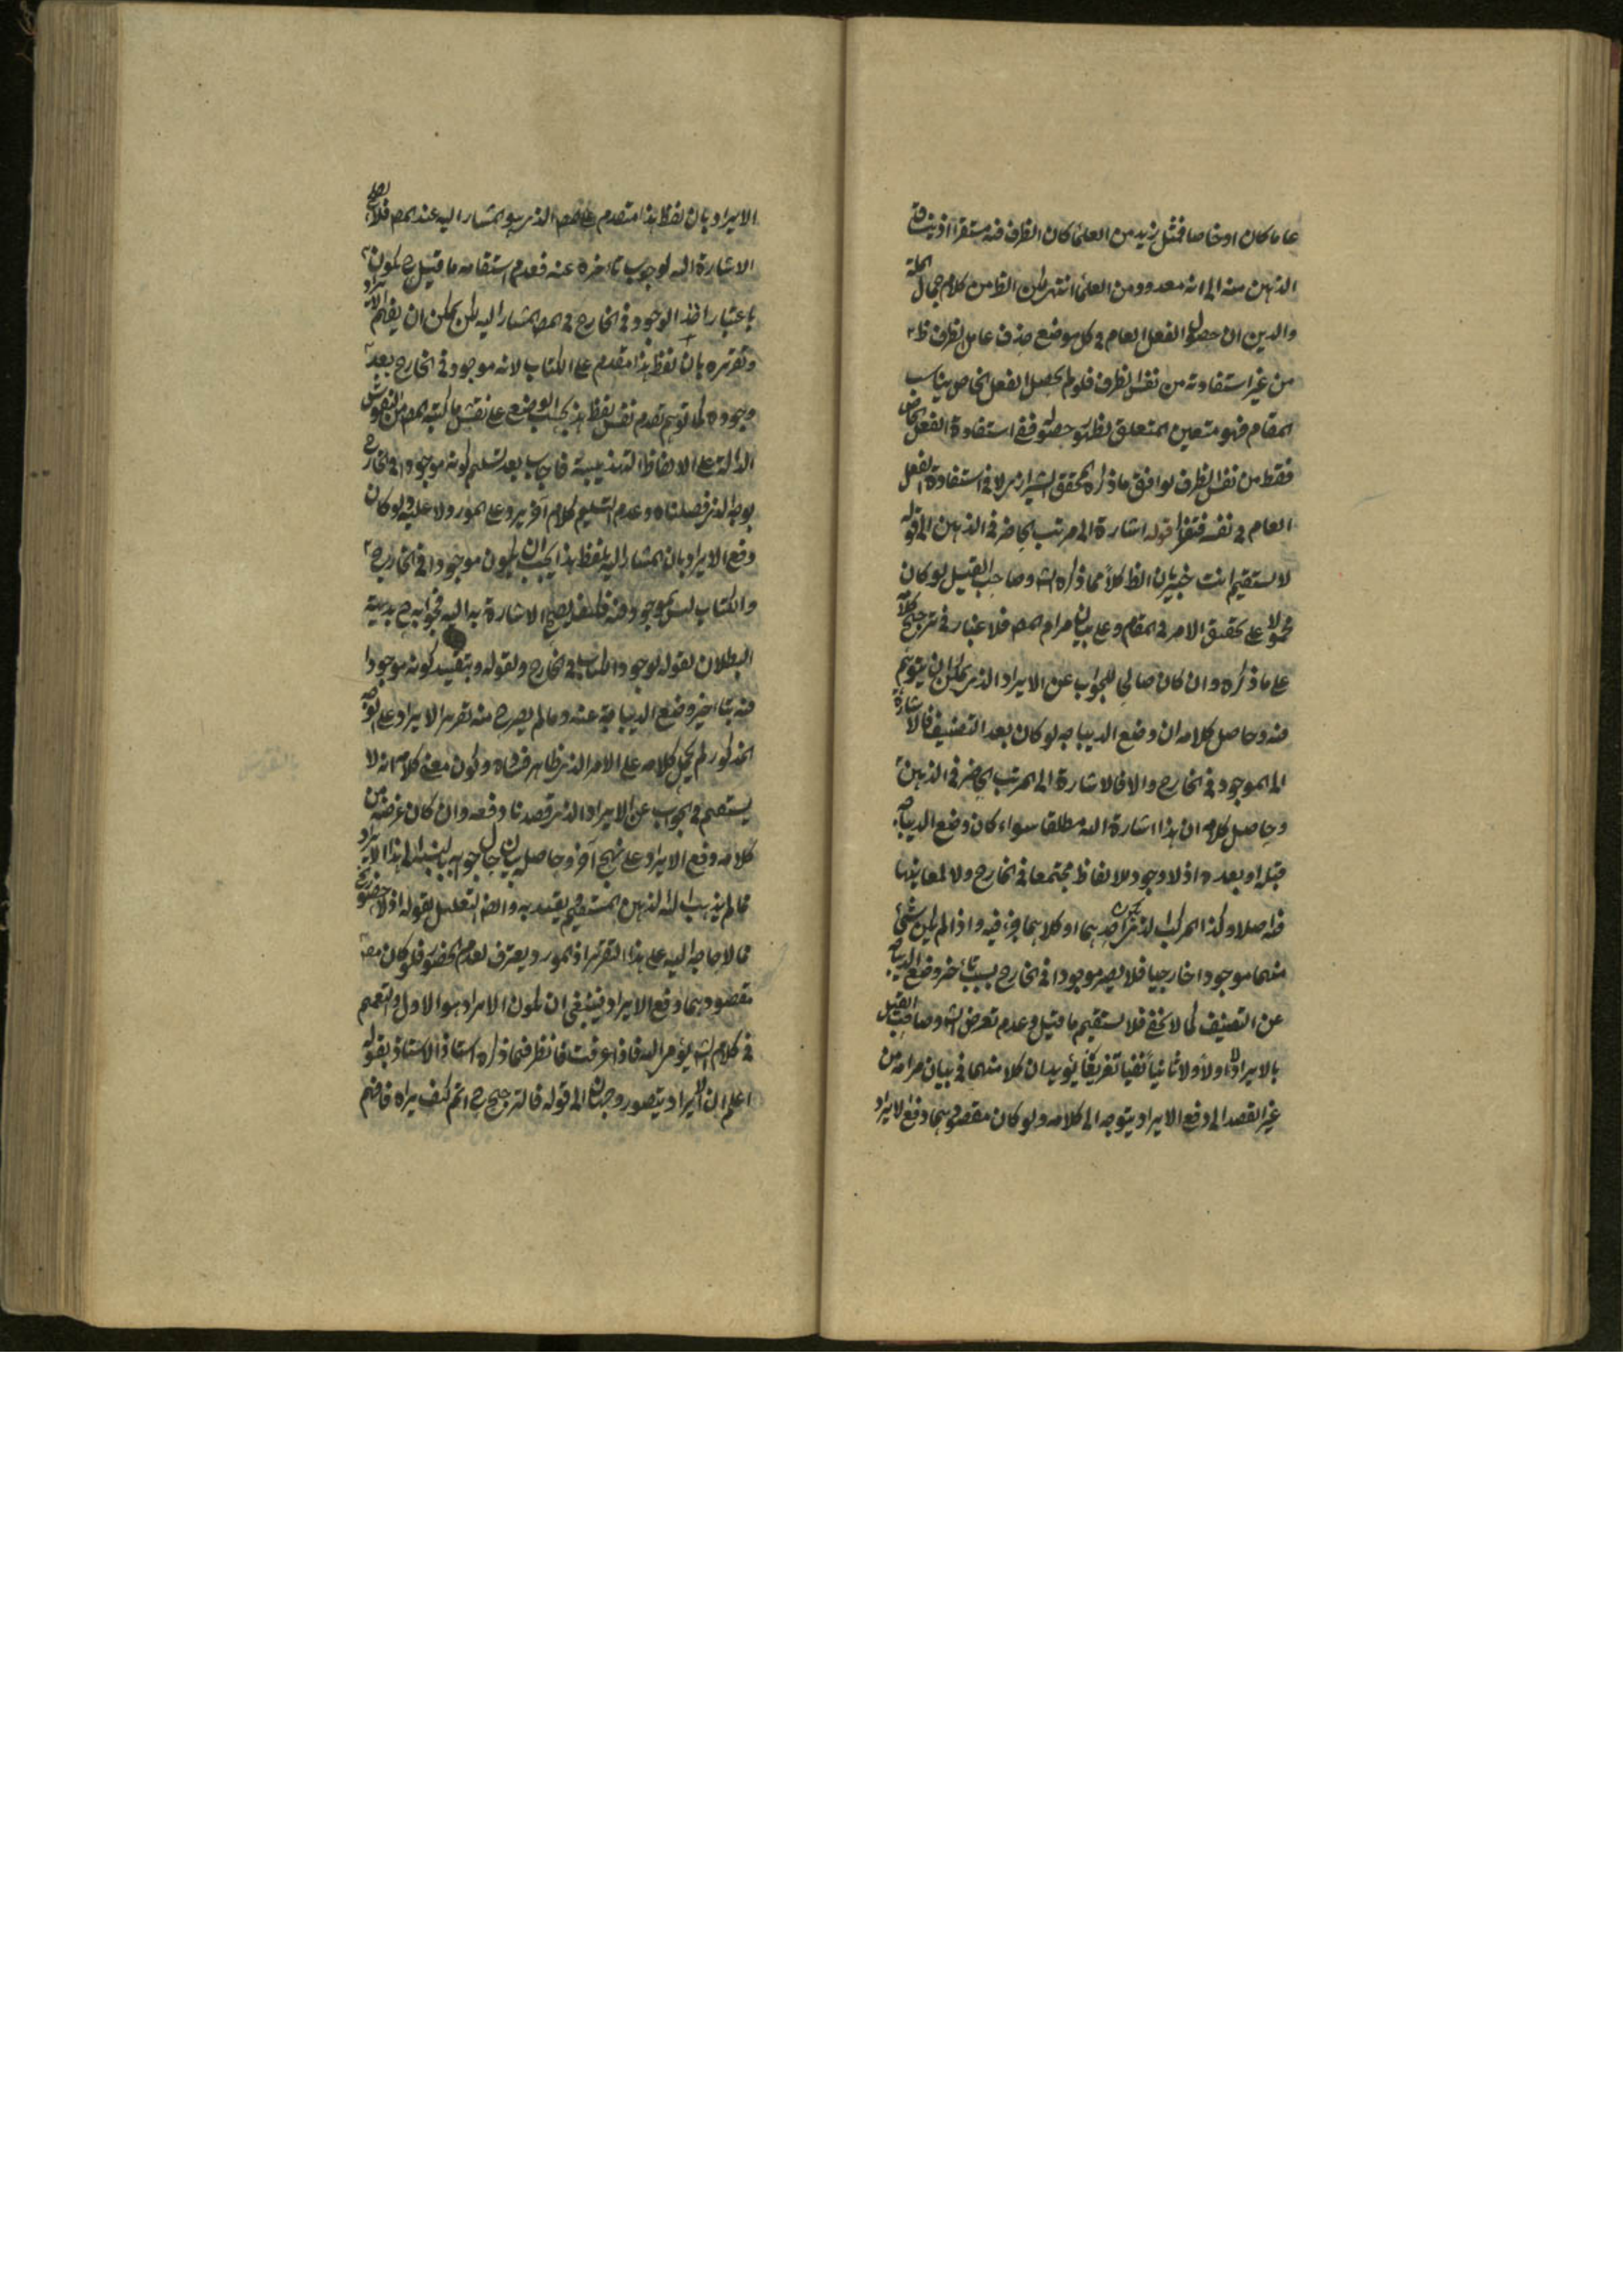 عاما كان او خاصا فمثل زيد من العلماء كان الظرف فيه مستقرا اذ ينساق
الذهن منه الى انه معدود من العلماء انتهى لكن الظ من كلام جمال الملة
والدين ان حصول الفعل العام في كل موضع حذف عامل الظرف
من غير استفادته من نفس الظرف فلو لم يحصل الفعل الخاص يناسب
المقام فهو متعين المتعلق فقى استفادة الفعل الخاص
فقط من نفس الظرف يوافق ما ذكره المحقق الشيرازى لا في استفادة الفعل
العام في نفسه قوله اشارة الى مرتب الحاضر في الذهن الى قوله
لا يستقيم انت خبير بان الظ كلا مما ذكره الش وصاحب القيل لو كان
محمولا على تحقيق الامر في المقام وعلى بيان مرام المص فلا غبار في ترجيح كلامه
على ما ذكره وان كان صالحا للجواب عن الايراد الذى يمكن ان يتوهم
فيه وحاصل كلامه ان وضع الديباجه لو كان بعد التصنيف فالاشارة
الى الموجود في الخارج والا فالاشارة الى المرتب الحاضر في الذهن
وحاصل كلامه ان هذا اشارة اليه مطلقا سواء كان وضع الديباجه
قبله او بعده اذ لا وجود للالفاظ مجتمعا في الخارج ولا لمعانيها
فيه اصلا وكذا المركب الذى احدهما او كلاهما جزء فيه واذا لم يكن شئ
منهما موجودا خارجيا فلا يصير موجودا في الخارج بسبب تأخر وضع الديباجه
عن التصنيف كما لا يخفى فلا يستقيم ما قيل وعدم تعرض الش وصاحب القيل
بالايراد لا اولا ولا ثانيا نفيا تفريقا يؤيد ان كلا منهما في بيان مرامه من
غير القصد الى دفع الايراد يتوجه الى كلامه ولو كان مقصودهما دفع الايراد
الايراد بان لفظ هذا متقدم على الذى هو المشار اليه عند المص فلا يصح
الاشارة اليه لوجوب تأخره عنه فعدم استقامه ما قيل ح يكون
باعتبار اخذ الوجود في الخارج في المشار اليه لكن يمكن ان يفهم الايراد
وتقريره بان لفظ هذا متقدم على الكتاب لانه موجود في الخارج بعد
وجوده كما توهم تقدم نفس لفظ هذا بحسب الوضع على نقش ما كتبه المص من النقوش
الدالة على الالفاظ التهذيبية فاجاب بعد تسليم كونه موجودا في الخارج
بوجه الذى فصلناه وعدم التسليم كلام آخر يرد على المورد لا عليه ولو كان
دفع الايراد بان المشار اليه بلفظ هذا يجب ان يكون موجودا في الخارج
والكتاب ليس بموجود فيه فكيف يصح الاشارة به اليه فجوابه ح بديهية
البطلان لقوله لوجود الكتاب في الخارج ولقوله وبتقييد كونه موجودا
فيه بتاخير وضع الديباجه عنه وما لم يصرح منه تقرير الايراد على الوجه
المذكور لم يحمل كلامه على الامر الذى ظاهر فساده وكون معنى كلامه انه لا
يستقيم في الجواب عن الايراد الذى قصدنا دفعه وان كان غرضه من
كلامه دفع الايراد على نهج آخر وحاصل بيان حال جوابه بالنسبة الى هذا الايراد
مما لم يذهب اليه الذهن المستقيم يقتدى به وايضا التعليل بقوله اذ لا حضور في الخارج
مما لا حاجة اليه على هذا التقرير اذ المورد يعترف لعدم الحضور فلو كان
مقصودهما دفع الايراد فينبغى ان يكون الايراد هو الاول والتعميم
في كلام الش يؤمى اليه فاذا عرفت فانظر فيما ذكره استاذ الاستاذ بقوله
اعلم ان الايراد يتصور وجهان الى قوله فالترجيح ح اتم كيف يراه فافهم
بالنقوش